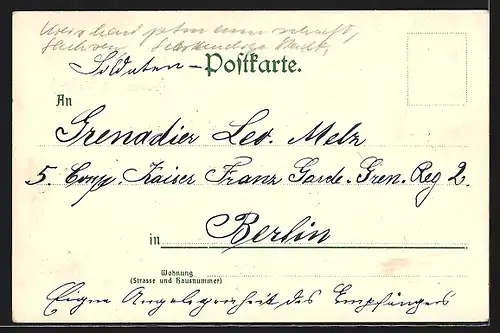 Soldaten - Postkarte.
An
Grenadier Leo. Melz
5. Comp. Kaiser Franz Garde-Gren. Reg 2.
in Berlin
Wohnung
(Strasse und Hausnummer)
Eigne Angelegenheit des Empfängers